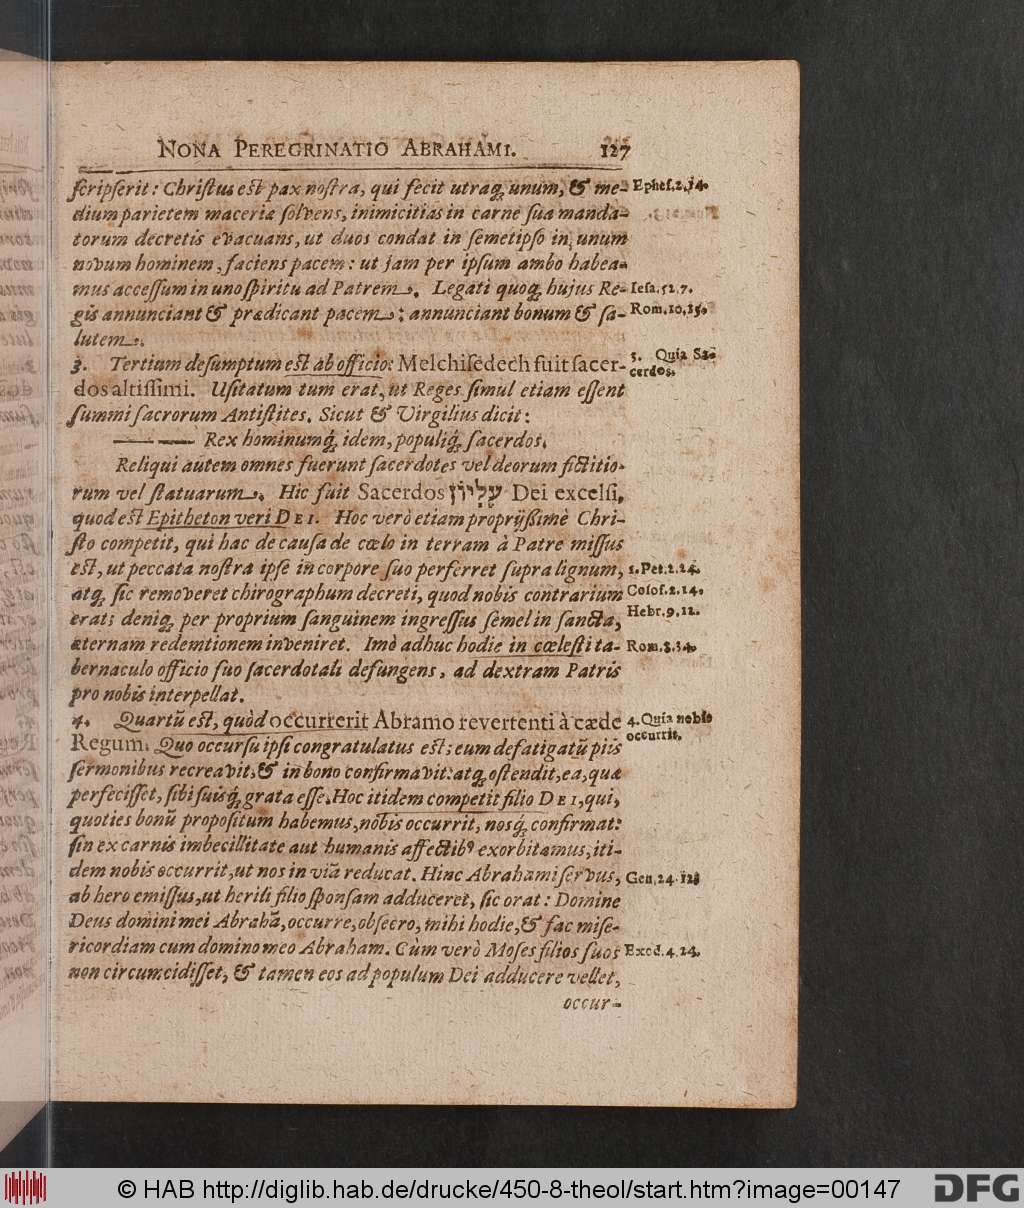 NONA PEREGRINATIO ABRAHAMI. 127
ſcripſerit: Chriſtus est pax noſtra, qui fecit utraq; unum, & me-
dium parietem maceriæ ſolvens, inimicitias in carne ſua manda-
torum decretis evacuans, ut duos condat in ſemetipſo in unum
novum hominem, faciens pacem: ut jam per ipſum ambo habea-
mus acceſſum in uno ſpiritu ad Patrem. Legati quoq; hujus Re-
gis annunciant & prædicant pacem: annunciant bonum & ſa-
lutem.
3. Tertium deſumptum est ab officio: Melchiſedech fuit ſacer-
dos altiſſimi. Uſitatum tum erat, ut Reges ſimul etiam eſſent
ſummi ſacrorum Antiſtites. Sicut & Virgilius dicit:
Rex hominumq́; idem, populiq́; ſacerdos.
Reliqui autem omnes fuerunt ſacerdotes vel deorum fictitio-
rum vel ſtatuarum. Hic fuit Sacerdos עֶלְיוֹן Dei excelſi,
quod est Epitheton veri DEI. Hoc verò etiam propriißimè Chri-
ſto competit, qui hac de cauſa de cœlo in terram à Patre miſſus
est, ut peccata noſtra ipſe in corpore ſuo perferret ſupra lignum,
atq; ſic removeret chirographum decreti, quod nobis contrarium
erat; deniq; per proprium ſanguinem ingreſſus ſemel in ſancta,
æternam redemtionem inveniret. Imò adhuc hodie in cœleſti ta-
bernaculo officio ſuo ſacerdotali defungens, ad dextram Patris
pro nobis interpellat.
4. Quartũ est, quòd occurrerit Abramo revertenti à cæde
Regum. Quo occurſu ipſi congratulatus est; eum defatigatũ piis
ſermonibus recreavit, & in bono confirmavit: atq; oſtendit, ea, quæ
perfeciſſet, ſibi ſuisq́; grata eſſe. Hoc itidem competit filio DEI, qui,
quoties bonũ propoſitum habemus, nobis occurrit, nosq́; confirmat:
ſin ex carnis imbecillitate aut humanis affectibꝰ exorbitamus, iti-
dem nobis occurrit, ut nos in viã reducat. Hinc Abrahami ſervus,
ab hero emiſſus, ut herili filio ſponſam adduceret, ſic orat: Domine
Deus domini mei Abrahã, occurre, obſecro, mihi hodie, & fac miſe-
ricordiam cum domino meo Abraham. Cùm verò Moſes filios ſuos
non circumcidiſſet, & tamen eos ad populum Dei adducere vellet,
occur-
Epheſ. 2, 14.
Ieſa. 52. 7.
Rom. 10, 15.
3. Quia Sa-
cerdos.
1. Pet. 2. 24.
Coloſ. 2. 14.
Hebr. 9, 12.
Rom. 8. 34.
4. Quia nobis
occurrit.
Gen. 24. 12
Exod. 4. 24.
© HAB http://diglib.hab.de/drucke/450-8-theol/start.htm?image=00147
DFG